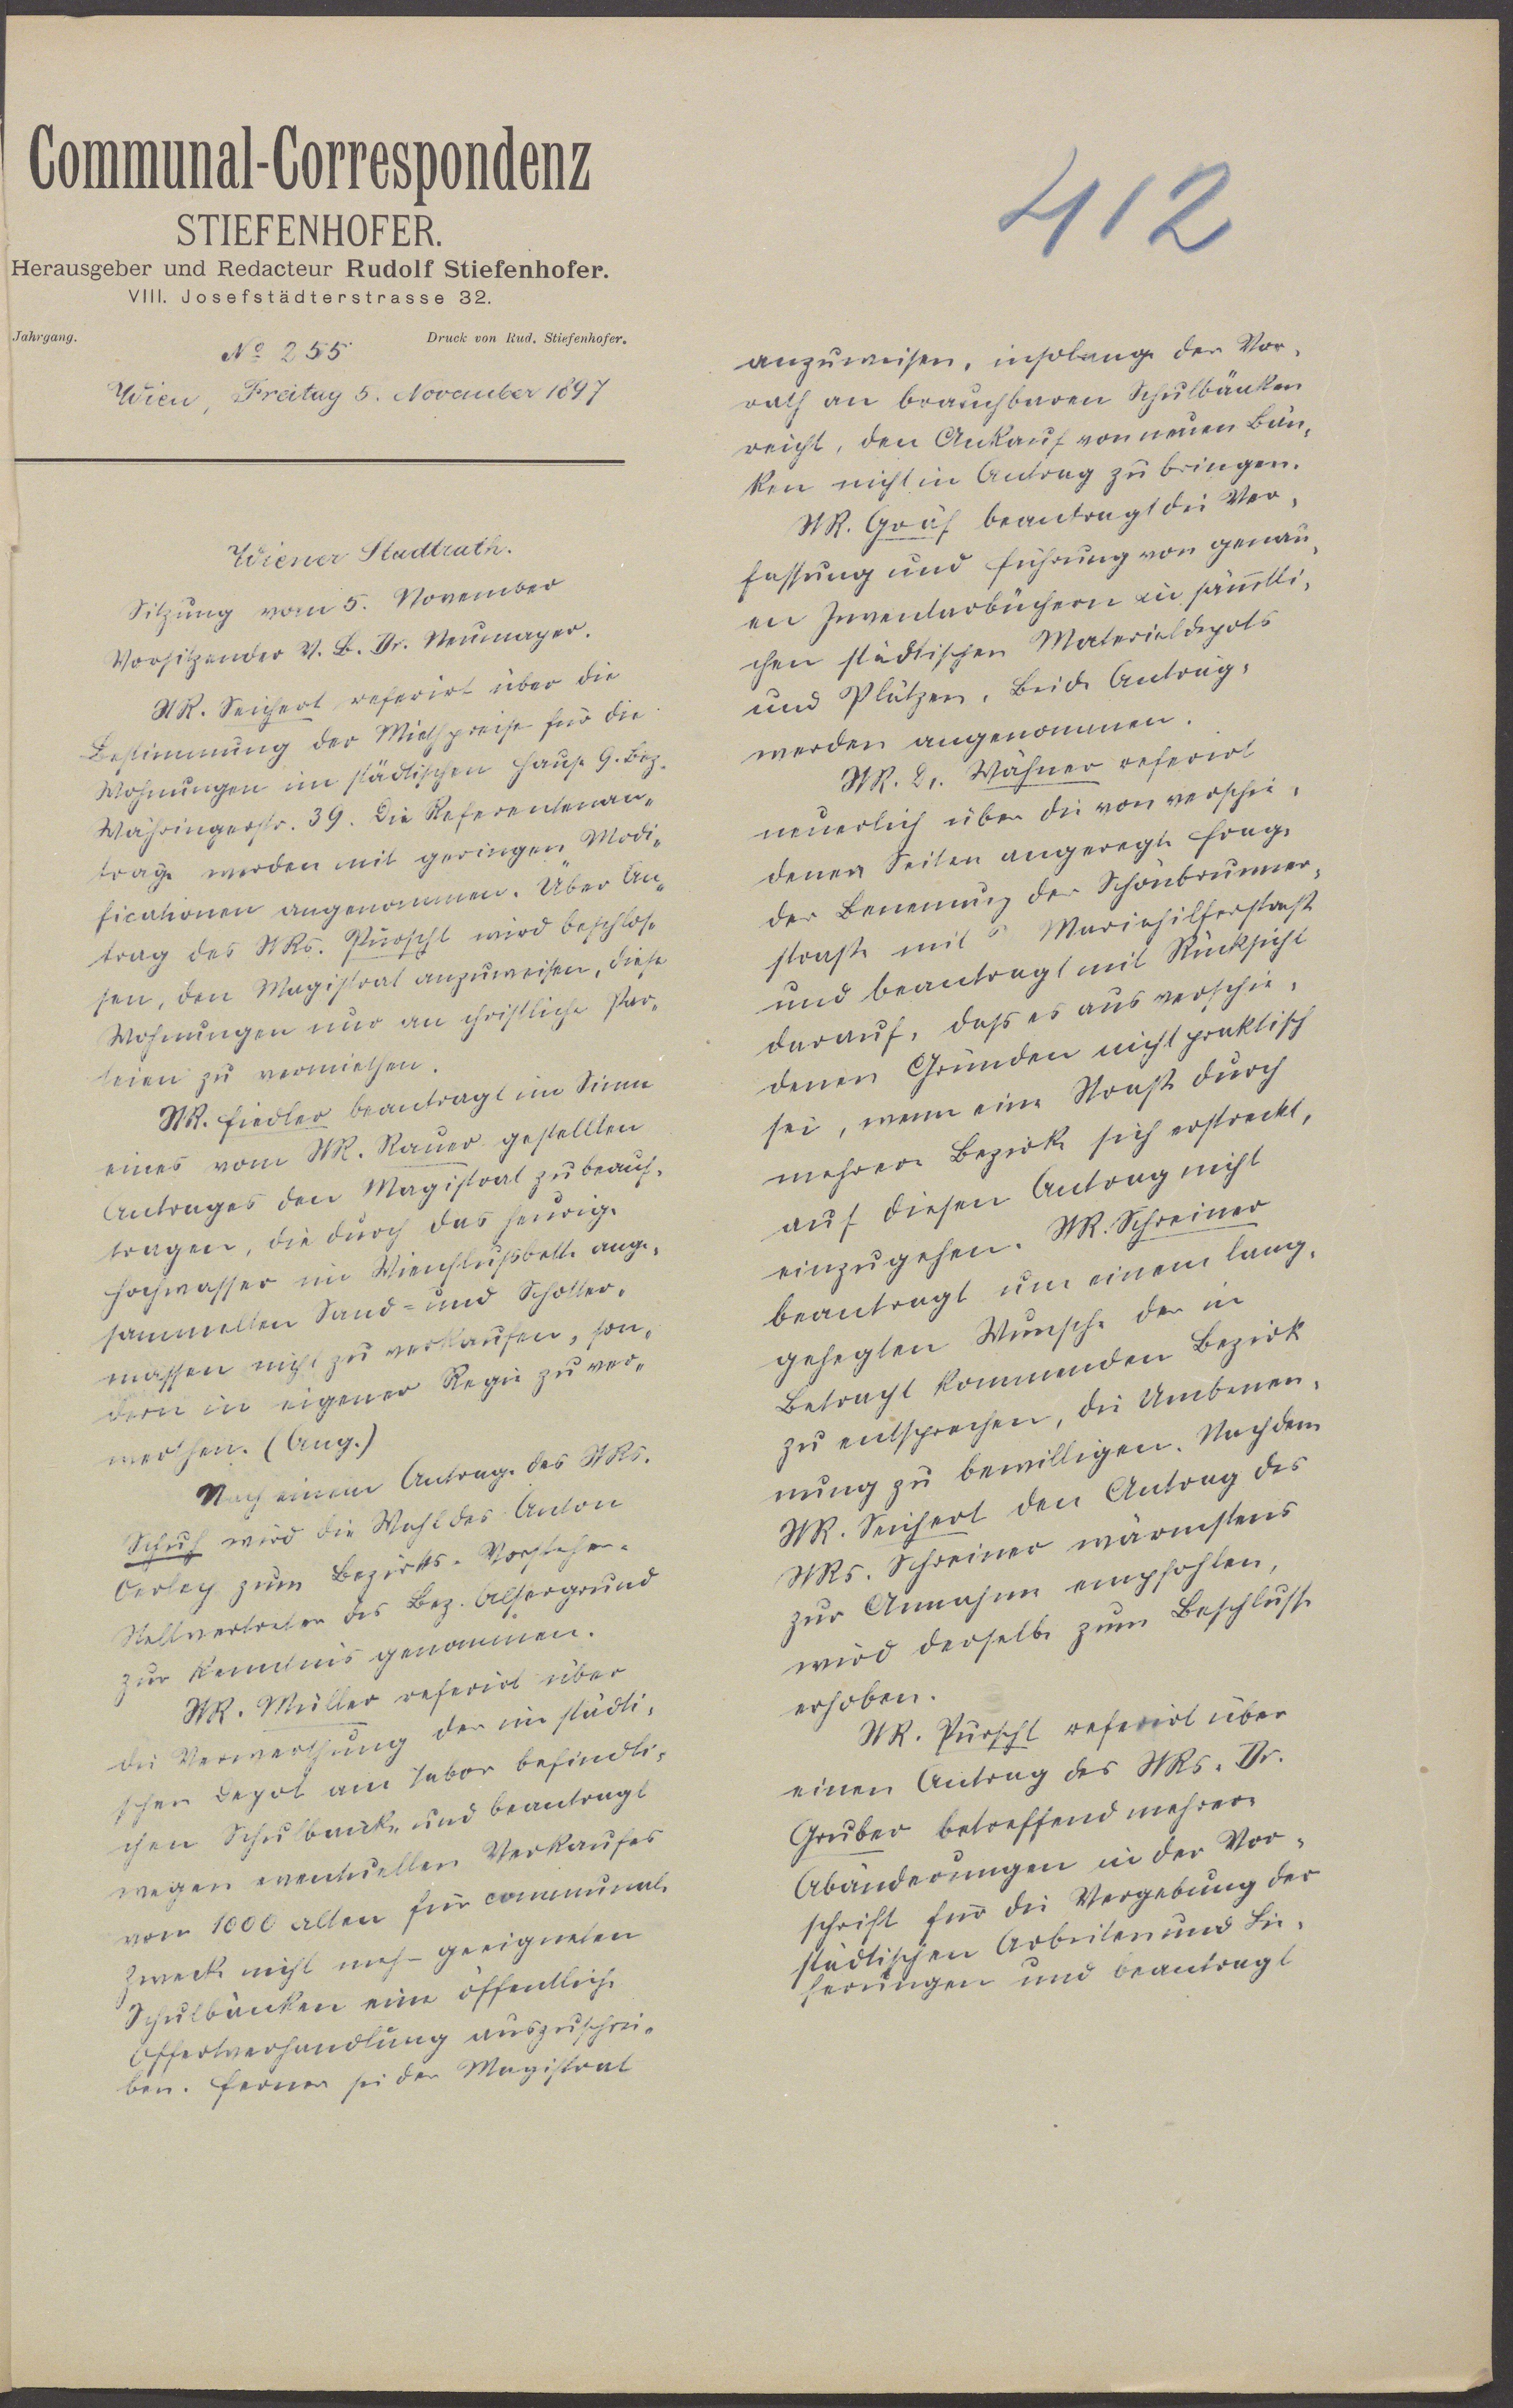 Communal-Correspondenz
STIEFENHOFER.
Herausgeber und Redacteur Rudolf Stiefenhofer.
VIII. Josefstädterstrasse 32.
Jahrgang.
Druck von Rud. Stiefenhofer.
№ 255
Wien, Freitag 5. November 1897
412
Wiener Stadtrath.
Sitzung vom 5. November
Vorsitzender V. B. Dr. Neumayer.
StR. Seichert referirt über die
Bestimmung der Miethpreise für die
Wohnungen im städtischen Hause 9. Bez.
Währingerstr. 39. Die Referentenan-
träge werden mit geringen Modi-
ficationen angenommen. Über An-
trag des StRs. Purscht wird beschlos-
sen, den Magistrat anzuweisen, diese
Wohnungen nur an christliche Par-
teien zu vermiethen.
StR. Fiedler beantragt im Sinne
eines vom StR. Rauer gestellten
Antrages den Magistrat zu beauf-
tragen, die durch das heurige
Hochwasser im Wienflußbette ange-
sammelten Sand- und Schotter-
massen nicht zu verkaufen, son-
dern in eigener Regie zu ver-
werthen. (Ang.)
Nach einem Antrage des StRs.
Schuh wird die Wahl des Anton
Oerley zum Bezirks-Vorsteher-
Stellvertreter des Bez. Alsergrund
zur Kenntnis genommen.
StR. Müller referirt über
die Verwerthung der im städti-
schen Depot am Tabor befindli-
chen Schulbänke und beantragt
wegen eventuellen Verkaufes
von 1000 alten für communale
Zwecke nicht mehr geeigneten
Schulbänken eine öffentliche
Offertverhandlung auszuschrei-
ben. Ferner sei der Magistrat
anzuweisen, insolange der Vor-
rath an brauchbaren Schulbänken
reicht, den Ankauf von neuen Bän-
ken nicht in Antrag zu bringen.
StR. Gräf beantragt die Ver-
fassung und Führung von genau-
en Inventarbüchern in sämtli-
chen städtischen Materialdepots
und Plätzen. Beide Anträge
werden angenommen.
StR. Dr. Wähner referirt
neuerlich über die von verschie-
denen Seiten angeregte Frage
der Benennung der Schönbrunner-
strasse mit Mariahilferstrasse
und beantragt mit Rücksicht
darauf, dass es aus verschie-
denen Gründen nicht praktisch
sei, wenn eine Strasse durch
mehrere Bezirke sich erstreckt,
auf diesen Antrag nicht
einzugehen. StR. Schreiner
beantragt um einem lang-
gehegten Wunsche der in
Betracht kommenden Bezirk
zu entsprechen, die Umbenen-
nung zu bewilligen. Nachdem
StR. Seichert den Antrag des
StRs. Schreiner wärmstens
zur Annahme empfohlen,
wird derselbe zum Beschlusse
erhoben.
StR. Purscht referirt über
einen Antrag des StRs. Dr.
Gruber betreffend mehrere
Abänderungen in der Vor-
schrift für die Vergebung der
städtischen Arbeiten und Lie-
ferungen und beantragt